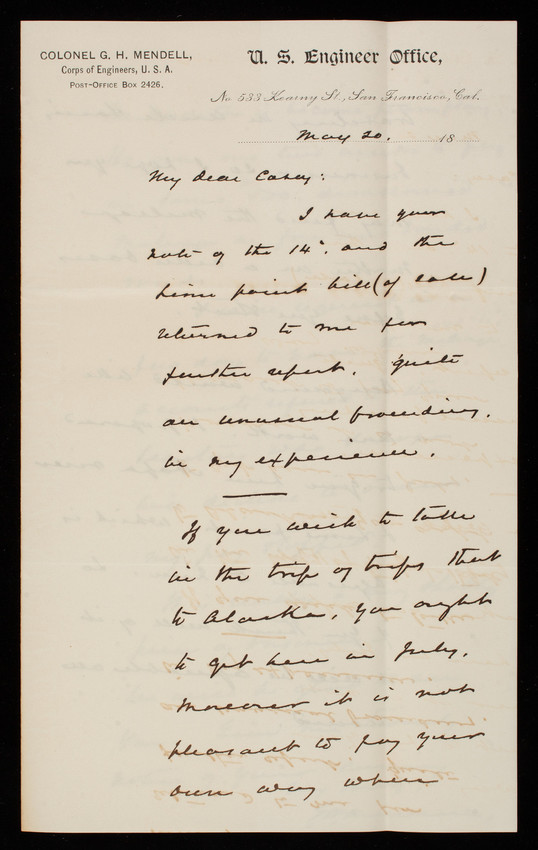 COLONEL G. H. MENDELL,
Corps of Engineers, U. S. A.
POST-OFFICE BOX 2426.
U. S. Engineer Office,
No. 533 Kearny St., San Francisco, Cal.
May 20. 18
My dear Casey:
I have your
note of the 14". and the
Lime point bill (of sale)
returned to me for
further report. quite
an unusual proceeding.
in my experience.
If you wish to take
in the trip of trips that
to Alaska, you ought
to get here in July.
Moreover it is not
pleasant to pay your
own way when